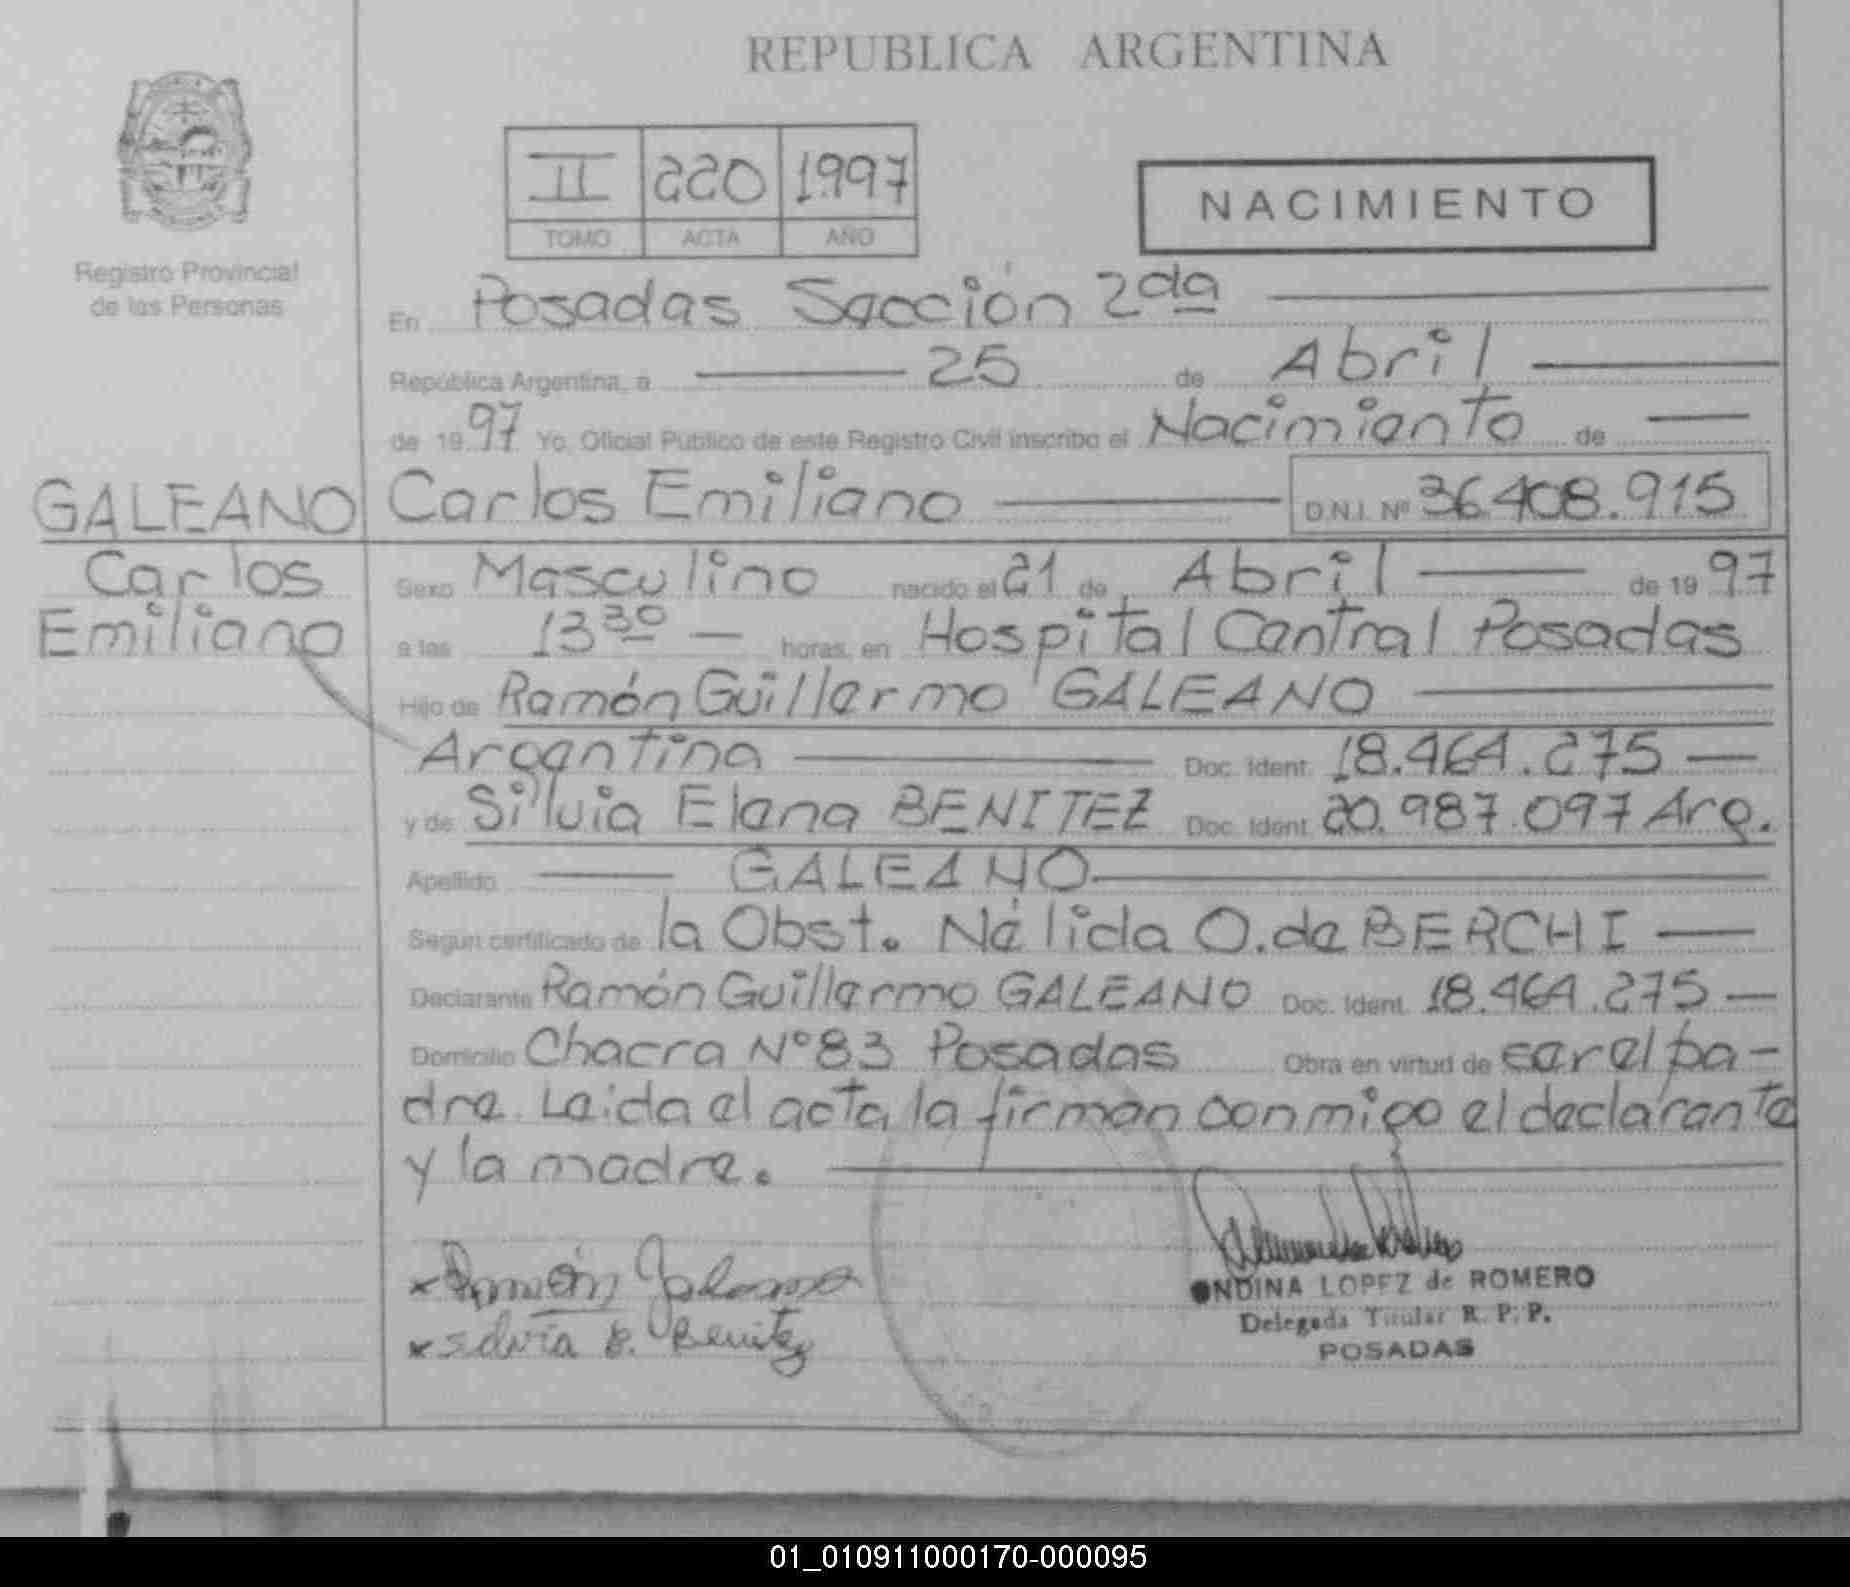 REPUBLICA ARGENTINA
II 220 1997
TOMO ACTA AÑO
NACIMIENTO
Registro Provincial
de las Personas
En Posadas Sección 2da
República Argentina, a 25 de Abril
de 1997 Yo, Oficial Público de este Registro Civil inscribo el Nacimiento de
GALEANO
Carlos
Emiliano
Carlos Emiliano D.N.I. Nº 36.408.915
Sexo Masculino nacido el 21 de Abril de 1997
a las 13 30 horas, en Hospital Central Posadas
Hijo de Ramón Guillermo GALEANO
Argentina Doc. Ident. 18.464.275
y de Silvia Elena BENITEZ Doc. Ident. 20.987.097 Arg.
Apellido GALEANO
Según certificado de la Obst. Nélida O. de BERCHI
Declarante Ramón Guillermo GALEANO Doc. Ident. 18.464.275
Domicilio Chacra Nº 83 Posadas Obra en virtud de ser el pa-
dre. Leida el acta, la firman conmigo el declarante
y la madre.
Ramón Galeano
Silvia E. Benitez
ONDINA LOPEZ de ROMERO
Delegada Titular R. P. P.
POSADAS
01_010911000170-000095